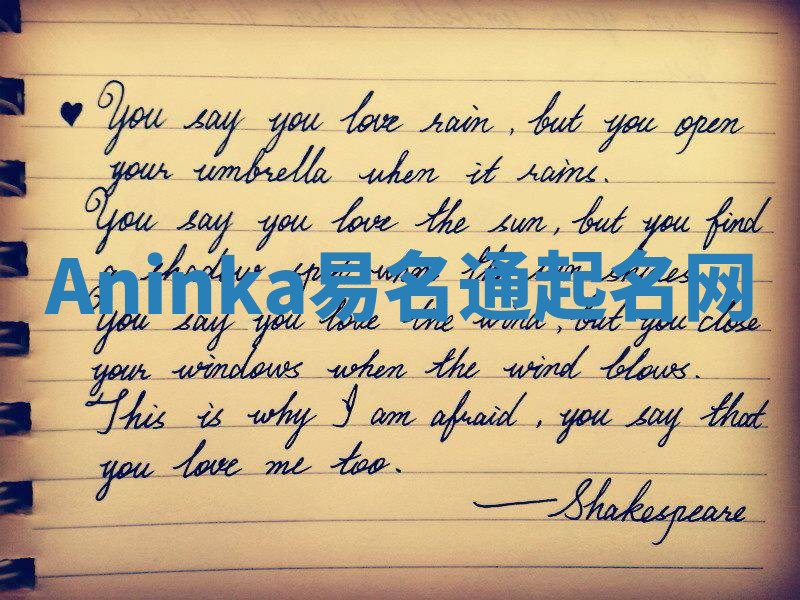 ♥ You say you love rain, but you open
your umbrella when it rains.
You say you love the sun, but you find
a shadow spot when the sun shines.
Aninka易名通起名网
You say you love the wind, but you close
your windows when the wind blows.
This is why I am afraid, you say that
you love me too.
—Shakespeare